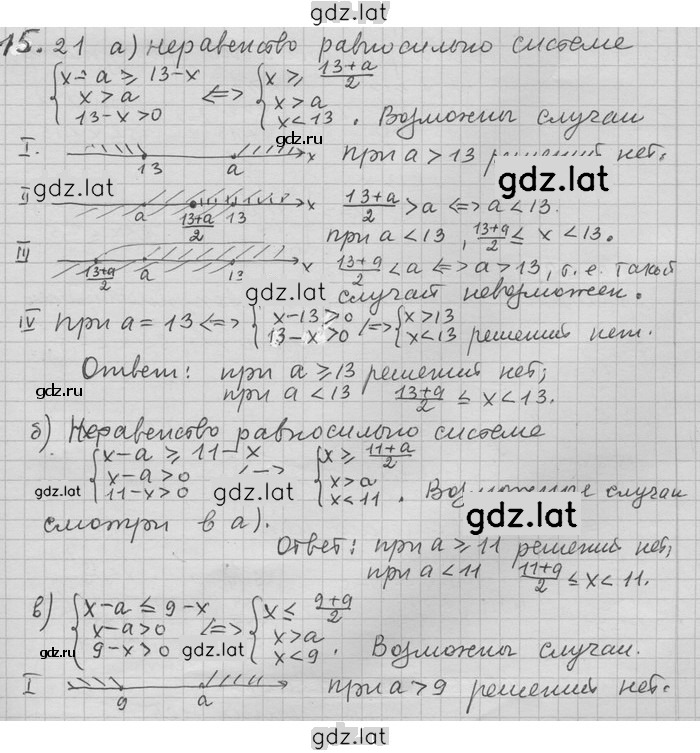 gdz.lat
15.21 а) неравенство равносильно системе
{x-a ≥ 13-x
x>a
13-x>0 <=> {x ≥ (13+a)/2
x>a
x<13. Возможны случаи
gdz.lat
I. 13 a x при a>13 решений нет.
gdz.lat gdz.lat
II a (13+a)/2 13 x (13+a)/2 > a <=> a<13.
при a<13, (13+a)/2 ≤ x <13.
III (13+a)/2 a 13 x (13+a)/2 < a <=> a>13, т.е. такой
gdz.lat случай невозможен.
IV при a=13 <=> {x-13>0
13-x>0 <=> {x>13
x<13 решений нет.
Ответ: при a ≥ 13 решений нет;
gdz.lat при a<13 (13+a)/2 ≤ x<13.
б) Неравенство равносильно системе
{x-a ≥ 11-x
x-a>0
11-x>0 {x ≥ (11+a)/2
x>a
x<11. случаи
gdz.lat gdz.lat gdz.lat
смотри в а).
Ответ: при a ≥ 11 решений нет,
при a<11 (11+a)/2 ≤ x<11.
в) {x-a ≤ 9-x
x-a>0
9-x>0 <=> {x ≤ (9+a)/2
x>a
x<9. Возможны случаи.
gdz.lat
I 9 a при a>9 решений нет.
gdz.lat